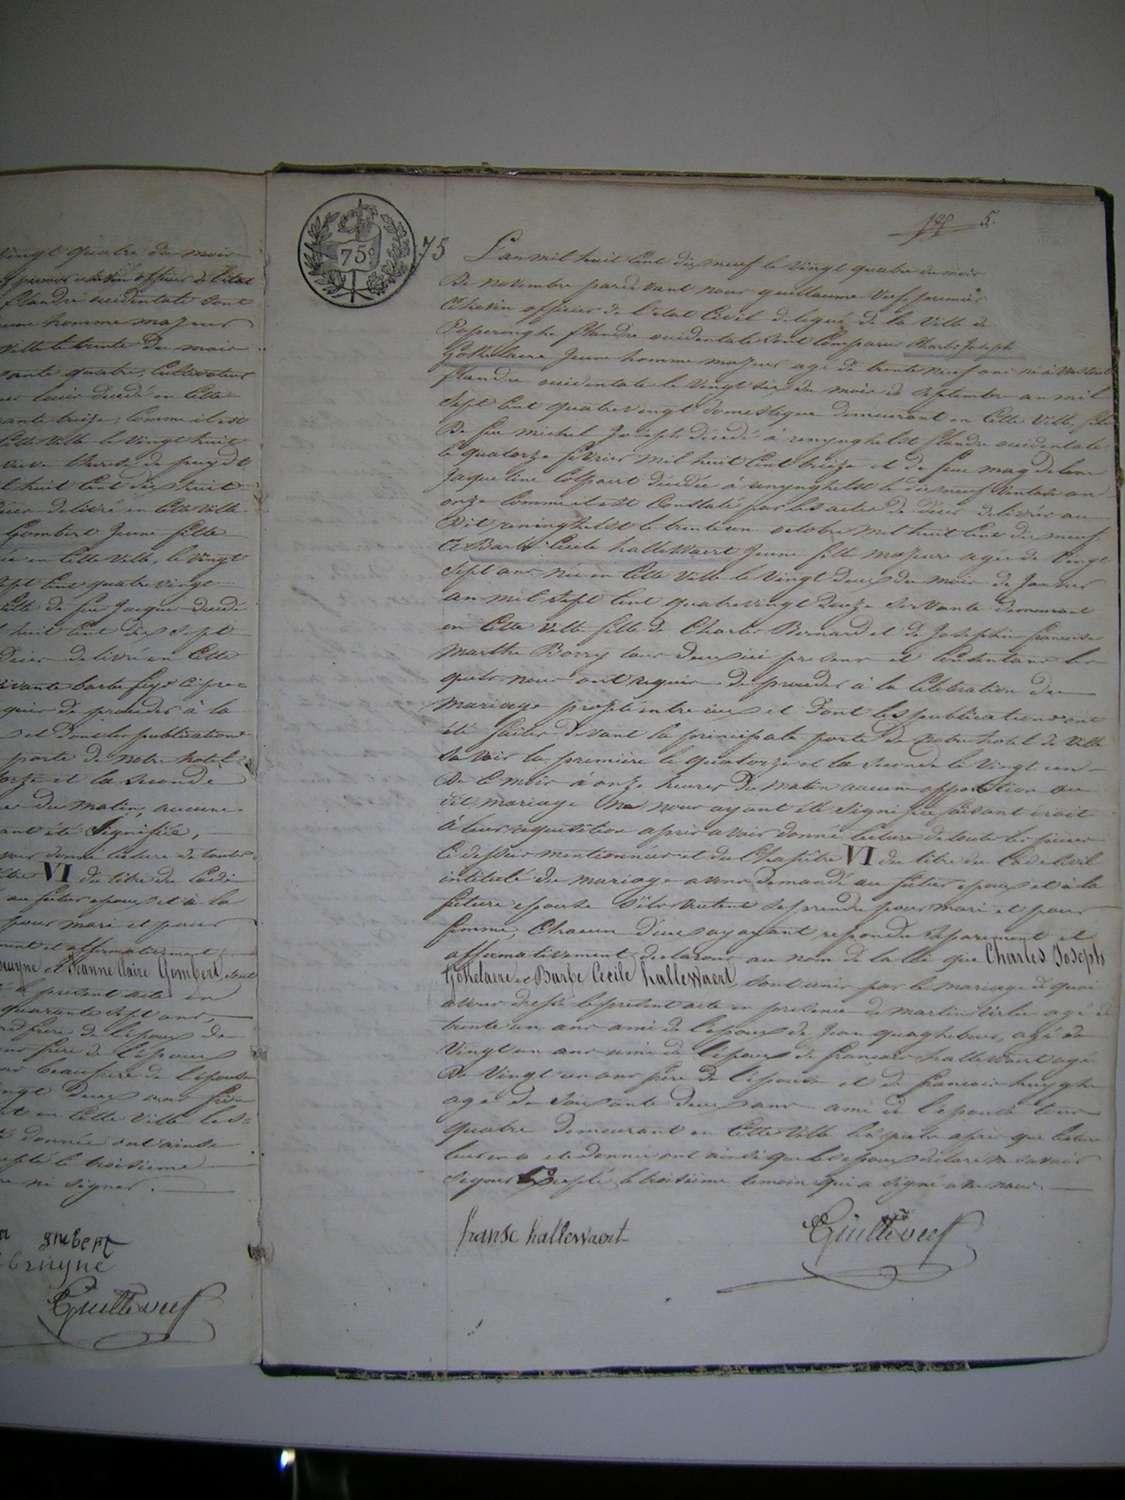 vingt quatre du mois
premier échevin officier de l'état
flandre occidentale sont
jeune homme majeur
ville le trente du mois
soixante quatre, cultivateur
décédé en cette
comme il est
cette ville le vingt huit
huit cent dix huit
délivré en cette ville
Gombert jeune fille
née en cette ville, le vingt
sept cent quatre vingt
fille de feu Jacques décédé
huit cent dix sept
délivré en cette
quis de procéder à la
et dont les publications
porte de notre hotel
onze et la seconde
du matin, aucune
ant été signifiée,
donné lecture de toutes
VI du titre du Code
au futur epoux et à la
pour mari et pour
ment et affirmativement
bruyne et Jeanne Claire Gombert, sont
le présent acte en
quarante sept ans,
frère de l'epoux de
frère de l'epoux
beaufrère de l'epouse
vingt deux ans
en cette ville les
donnée ont ainsi
le troisième
ni signer.
gombert
bruyne
Guille veuf
75
75
5.
L'an mil huit cent dix neuf le vingt quatre du mois
De novembre pardevant nous guillaume veuf, premier
Echevin officier de l'etat Civil delegué de la ville de
Poperinghe flandre occidentale sont Comparus Charles Joseph
Gokelaere Jeune homme majeur agé de trente neuf ans né à
flandre occidentale le vingt six du mois de septembre an mil
sept cent quatrevingt domestique demeurant en cette ville, fils
De feu michel Joseph décédé à renynghelst flandre occidentale
le quatorze février mil huit cent treize et de feue magdelene
Jaqueline décédée à renynghelst le dix neuf ventose an
onze comme il est constaté par les actes de décès delivrés au
Dit reninghelst le trente un octobre mil huit cent dix neuf
Et Barbe Cecile hallewaert Jeune fille majeure agée de vingt
sept ans née en cette ville le vingt deux du mois de Janvier
an mil sept cent quatrevingt douze servante demeurant
en cette ville fille de Charles Bernard et de Josephine francoise
marthe Borry tous deux ici présens et consentans les
quels nous ont requis de procéder à la Célébration du
mariage projetté entre eux et dont les publications ont
été faites devant la principale porte de notre hotel de ville
savoir la première le quatorze et la seconde le vingt un
De ce mois à onze heures Du matin aucune opposition au
dit mariage ne nous ayant été signifiée faisant droit
à leur réquisition après avoir donné lecture de toute les pièces
ci dessus mentionnées et du Chapitre VI du titre du Code Civil
intitulé du mariage avons demandé au futur epoux et à la
future epouse s'ils veulent se prendre pour mari et pour
femme, Chacun d'eux ayant repondu separement et
affirmativement declarons au nom de la loi que Charles Joseph
Gokelaere et Barbe Cecile hallewaert, sont unis par le mariage de quoi
avons dressé le present acte en presence de martin agé de
trente un ans ami de l'epoux de Jean quaghebeur, agé de
vingt un ans ami de l'epoux de francois hallewaert agé
De vingt un ans frère de l'epouse et de francois huyghe
agé de soixante deux ans ami de l'epouse tous
quatre demeurant en cette ville lesquels après que lecture
leur en a été donnée ont ainsi que les epoux declaré ne savoir
signer excepté le troisième temoin qui a signé avec nous.
franse hallewaert
Guille veuf